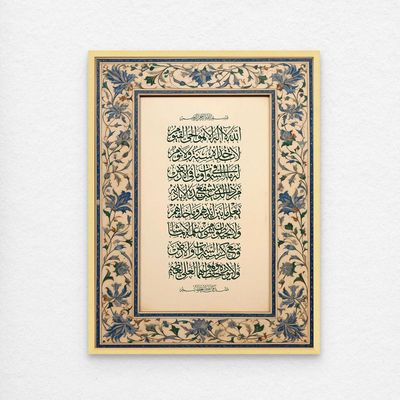 بسم الله الرحمن الرحيم
الله لا إله إلا هو الحي القيوم
لا تأخذه سنة ولا نوم
له ما في السموات وما في الأرض
من ذا الذي يشفع عنده إلا بإذنه
يعلم ما بين أيديهم وما خلفهم
ولا يحيطون بشيء من علمه إلا بما شاء
وسع كرسيه السموات والأرض
ولا يئوده حفظهما وهو العلي العظيم